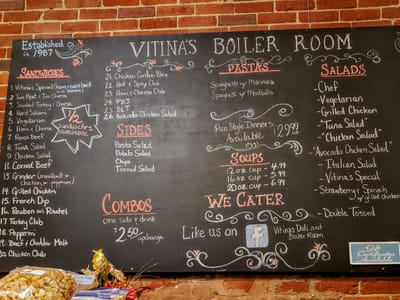 Established
in 1987
VITINA'S BOILER ROOM
SANDWICHES
1. Vitina's Special
2. Two Meat & Two Cheese
3. Smoked Turkey & Cheese
4. Hard Salami
5. Vegetarian
6. Ham & Cheese
7. Roast Beef
8. Tuna Salad
9. Chicken Salad
11. Corned Beef
13. Grinder (meatball or
chicken or pepperoni)
14. Grilled Chicken
15. French Dip
16. Reuben or Rachel
17. Turkey Club
18. Pepperoni
19. Beef & Cheddar Melt
20. Chicken Club
1/2
Sandwiches
Available
21. Chicken Cordon Bleu
22. Hot & Spicy Club
23. Ham & Cheese Club
24. PBJ
25. BLT
26. Avocado Chicken Salad
SIDES
Pasta Salad
Potato Salad
Chips
Tossed Salad
COMBOS
one side & drink
$2.50 upcharge
PASTAS
Spaghetti w/ Marinara
Spaghetti w/ Meatballs
Pan Style Dinners
Available
$29.99
SOUPS
12 oz cup - 4.99
16 oz cup - 5.99
20 oz cup - 6.99
WE CATER
Like us on f Vitinas Deli and
Boiler Room
SALADS
- Chef
- Vegetarian
- Grilled Chicken
- "Tuna Salad"
- "Chicken Salad"
- "Avocado Chicken Salad"
- Italian Salad
- Vitina's Special
- Strawberry Spinach
w/ grilled chicken
- Double Tossed
Gift